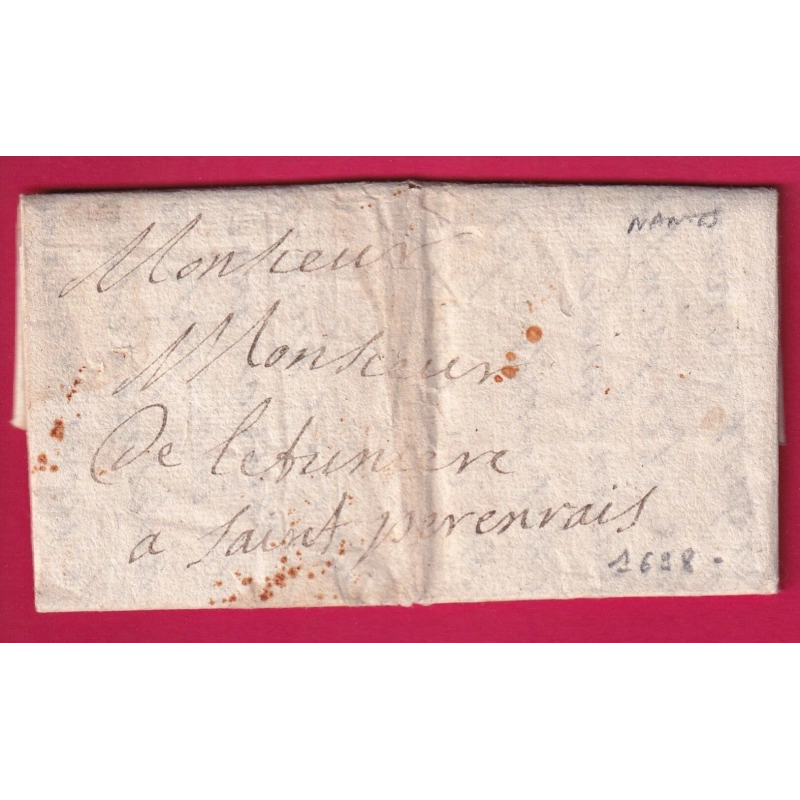 NANTES
Monsieur
Monsieur
De letuniere
a saint perenrais
1698.